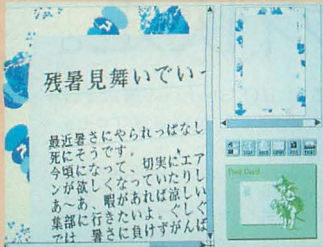 残暑見舞いでい
最近暑さにやられっぱなし
死にそうです。
今頃になって、切実にエア
ンが欲しくなっていたりし
あ〜あ、暇があれば涼しい
集部に行きたいよ。ぐしぐ
では、暑さに負けずがんば
Post Card